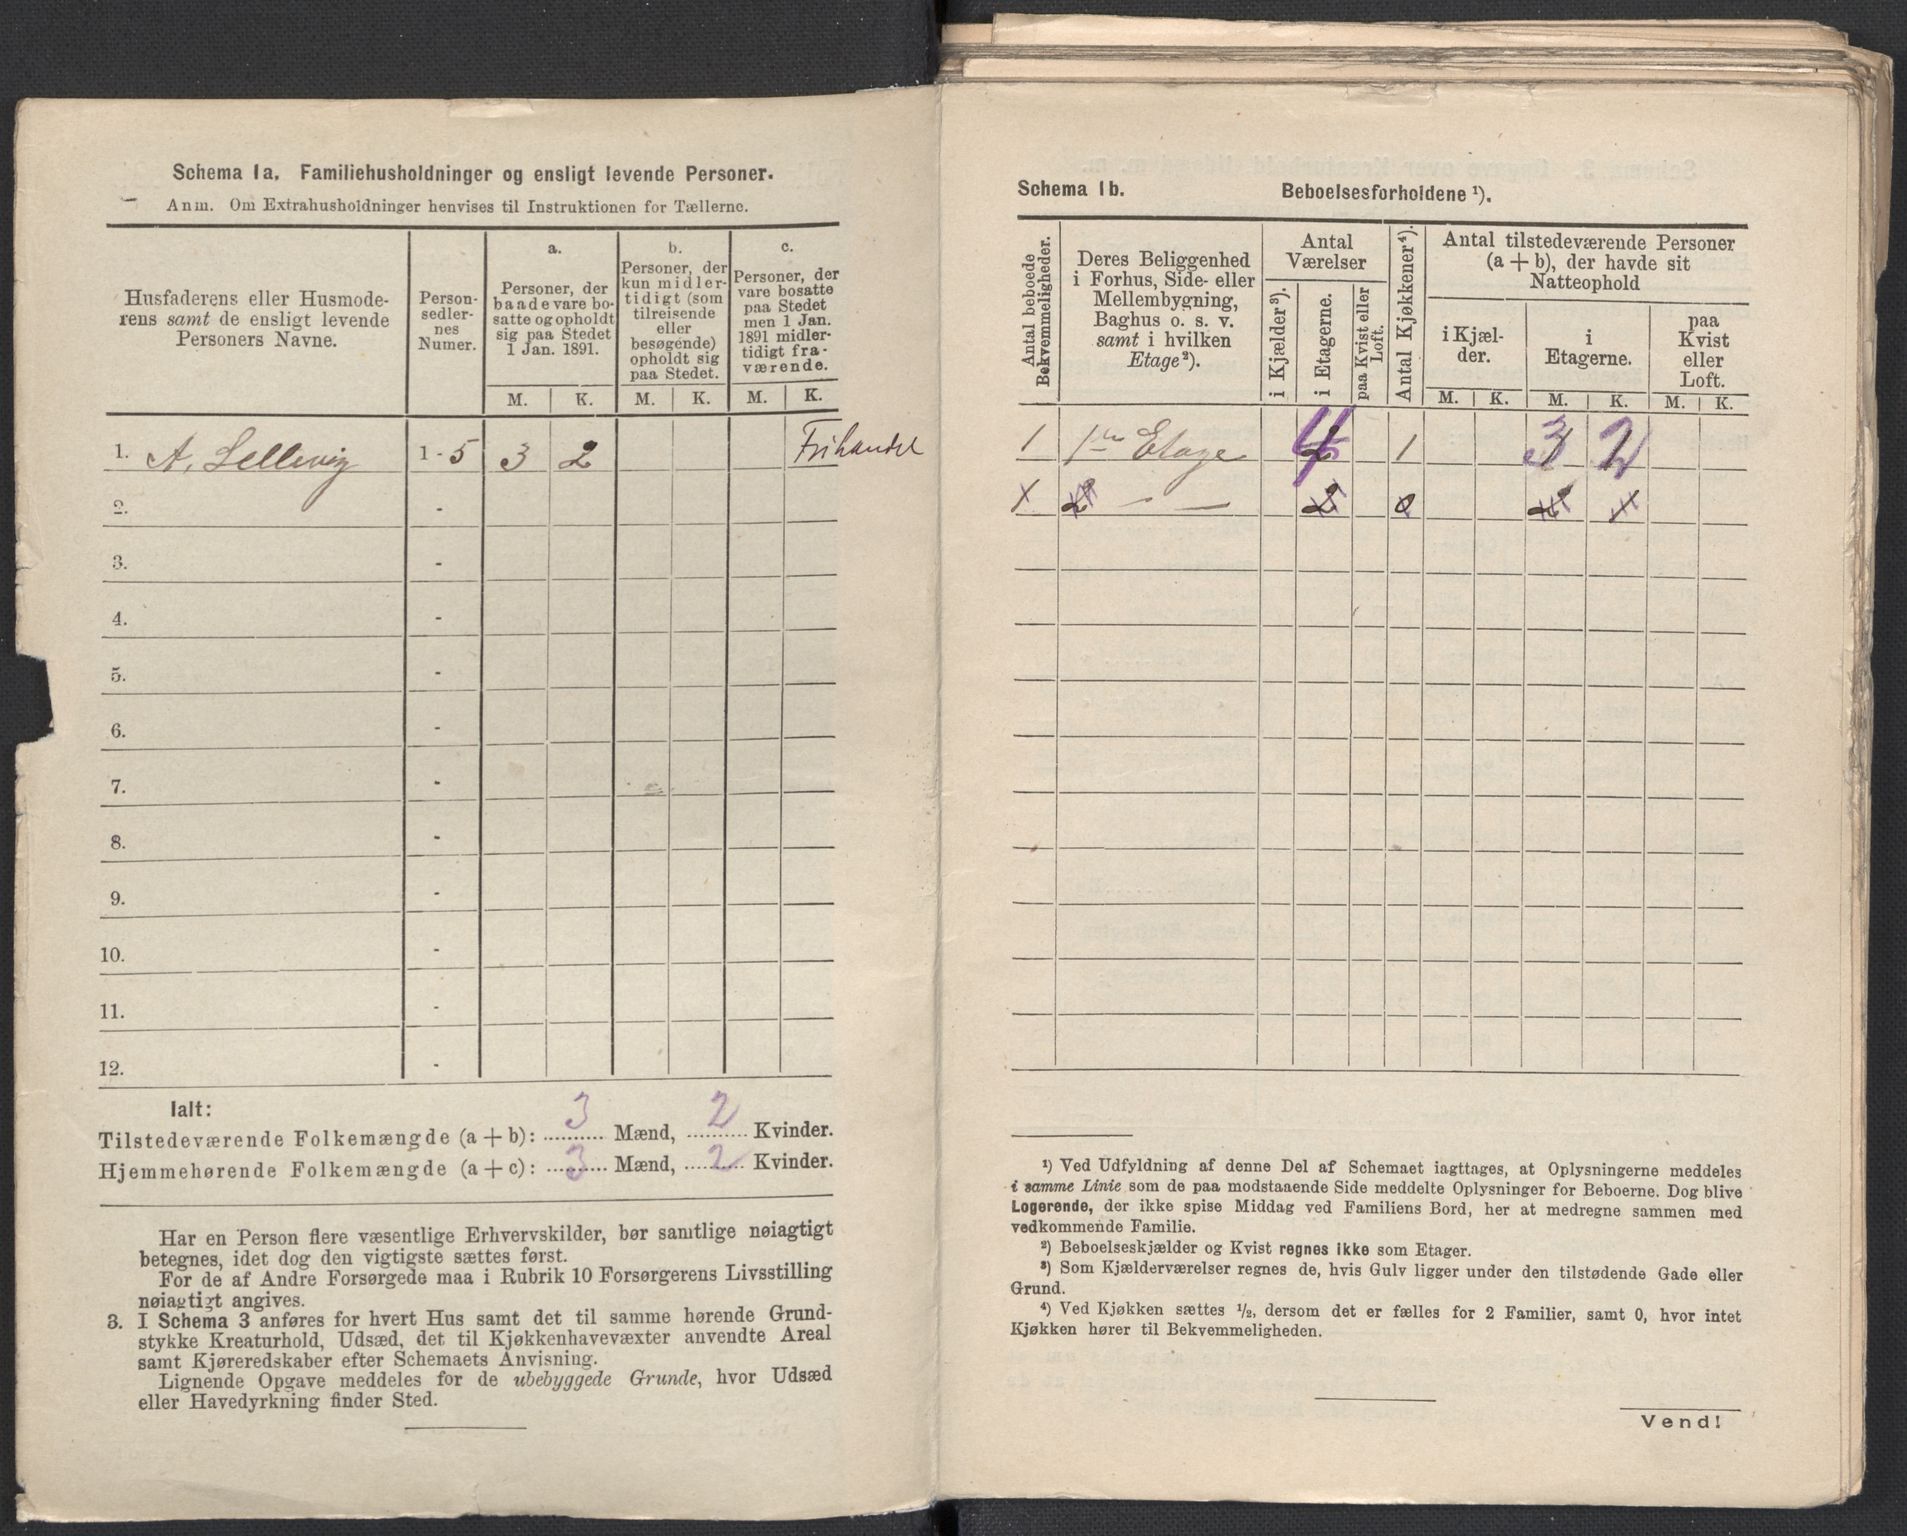 Schema 1a. Familiehusholdninger og ensligt levende Personer.
Anm. Om Extrahusholdninger henvises til Instruktionen for Tællerne.
Husfaderens eller Husmode-
rens samt de ensligt levende
Personers Navne.
Person-
sedler-
nes
Numer.
a.
Personer, der
baade vare bo-
satte og opholdt
sig paa Stedet
1 Jan. 1891.
b.
Personer, der
kun midler-
tidigt (som
tilreisende
eller
besøgende)
opholdt sig
paa Stedet.
c.
Personer, der
vare bosatte
paa Stedet
men 1 Jan.
1891 midler-
tidigt fra-
værende.
M. K. M. K. M. K.
1. A. Sellevig 1 - 5 3 2 Frihandel
2. -
3. -
4. -
5. -
6. -
7. -
8. -
9. -
10. -
11. -
12. -
Ialt:
Tilstedeværende Folkemængde (a + b): 3 Mænd, 2 Kvinder.
Hjemmehørende Folkemængde (a + c): 3 Mænd, 2 Kvinder.
Har en Person flere væsentlige Erhvervskilder, bør samtlige nøiagtigt
betegnes, idet dog den vigtigste sættes først.
For de af Andre Forsørgede maa i Rubrik 10 Forsørgerens Livsstilling
nøiagtigt angives.
3. I Schema 3 anføres for hvert Hus samt det til samme hørende Grund-
stykke Kreaturhold, Udsæd, det til Kjøkkenhavevæxter anvendte Areal
samt Kjøreredskaber efter Schemaets Anvisning.
Lignende Opgave meddeles for de ubebyggede Grunde, hvor Udsæd
eller Havedyrkning finder Sted.
Schema 1b. Beboelsesforholdene ¹).
Antal beboede
Bekvemmeligheder.
Deres Beliggenhed
i Forhus, Side- eller
Mellembygning,
Baghus o. s. v.
samt i hvilken
Etage²).
Antal
Værelser
i Kjælder³).
i Etagerne.
paa Kvist eller
Loft.
Antal Kjøkkener⁴).
Antal tilstedeværende Personer
(a + b), der havde sit
Natteophold
i Kjæl-
der.
i
Etagerne.
paa
Kvist
eller
Loft.
M. K. M. K. M. K.
1 1ste Etage 4 1 3 2
1 2 — — 2 0 2 1
¹) Ved Udfyldning af denne Del af Schemaet iagttages, at Oplysningerne meddeles
i samme Linie som de paa modstaaende Side meddelte Oplysninger for Beboerne. Dog blive
Logerende, der ikke spise Middag ved Familiens Bord, her at medregne sammen med
vedkommende Familie.
²) Beboelseskjælder og Kvist regnes ikke som Etager.
³) Som Kjælderværelser regnes de, hvis Gulv ligger under den tilstødende Gade eller
Grund.
⁴) Ved Kjøkken sættes ½, dersom det er fælles for 2 Familier, samt 0, hvor intet
Kjøkken hører til Bekvemmeligheden.
Vend!